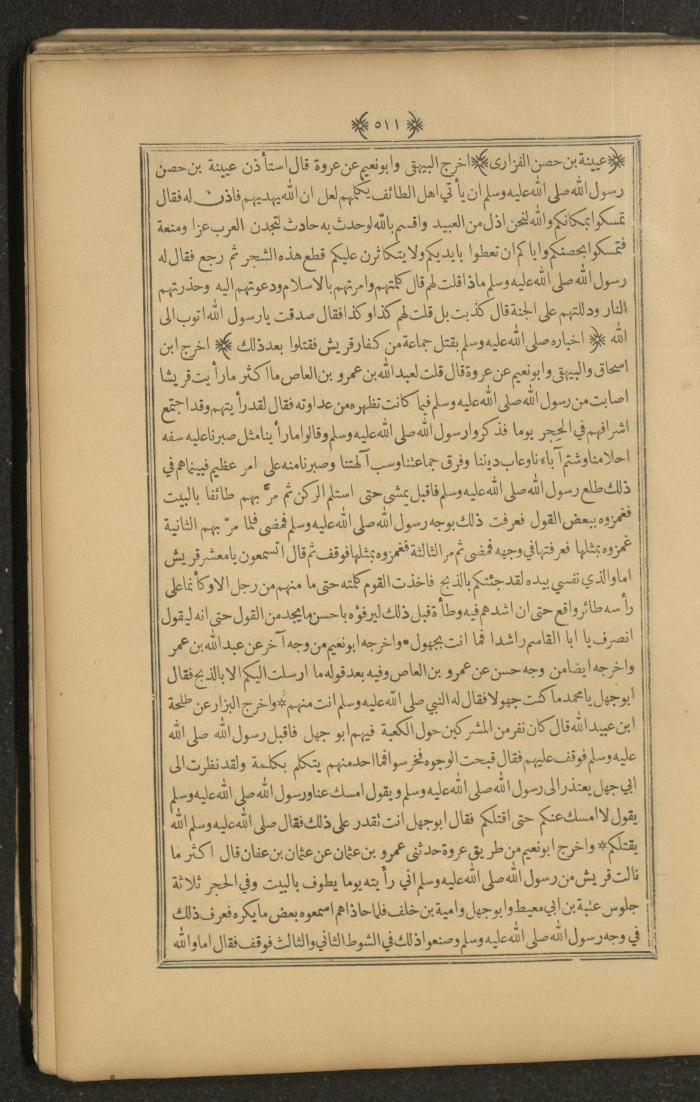 ﴿ ٥١١ ﴾
﴿ عيينة بن حصن الفزارى ﴾ اخرج البيهقى وابونعيم عن عروة قال استأ ذن عيينة بن حصن
رسول الله صلى الله عليه وسلم ان يأتي اهل الطائف يكلمهم لعل ان الله يهديهم فاذن له فقال
تمسكوا بمكانكم والله لنحن اذل من العبيد واقسم بالله لو حدث به حادث لتجدن العرب عزا ومنعة
فتمسكوا بحصنكم واياكم ان تعطوا بايديكم ولا يتكاثرن عليكم قطع هذه الشجر ثم رجع فقال له
رسول الله صلى الله عليه وسلم ماذا قلت لهم قال كلمتهم وامرتهم بالاسلام ودعوتهم اليه وحذرتهم
النار ودللتهم على الجنة قال كذبت بل قلت لهم كذا وكذا فقال صدقت يا رسول الله اتوب الى
الله ﴿ اخباره صلى الله عليه وسلم بقتل جماعة من كفار قريش فقتلوا بعد ذلك ﴾ اخرج ابن
اسحاق والبيهقى وابونعيم عن عروة قال قلت لعبد الله بن عمرو بن العاص ما اكثر ما رأيت قريشا
اصابت من رسول الله صلى الله عليه وسلم فيما كانت تظهره من عداوته فقال لقد رأيتهم وقد اجتمع
اشرافهم في الحجر يوما فذكروا رسول الله صلى الله عليه وسلم وقالوا ما رأينا مثل صبرنا عليه سفه
احلامنا وشتم آباءنا وعاب ديننا وفرق جماعتنا وسب آلهتنا وصبرنا منه على امر عظيم فبينما هم في
ذلك طلع رسول الله صلى الله عليه وسلم فاقبل يمشى حتى استلم الركن ثم مرّ بهم طائفا بالبيت
فغمزوه ببعض القول فعرفت ذلك بوجه رسول الله صلى الله عليه وسلم فمضى فلما مرّ بهم الثانية
غمزوه بمثلها فعرفتها في وجهه فمضى ثم مر الثالثة فغمزوه بمثلها فوقف ثم قال اتسمعون يا معشر قريش
اما والذي نفسي بيده لقد جئتكم بالذبح فاخذت القوم كلمته حتى ما منهم من رجل الا وكأنما على
رأسه طائر واقع حتى ان اشدهم فيه وطأة قبل ذلك ليرفؤه باحسن ما يجد من القول حتى انه ليقول
انصرف يا ابا القاسم راشدا فما انت بجهول • واخرجه ابونعيم من وجه آخر عن عبد الله بن عمر
واخرجه ايضا من وجه حسن عن عمرو بن العاص وفيه بعد قوله ما ارسلت اليكم الا بالذبح فقال
ابوجهل يا محمد ما كنت جهولا فقال له النبي صلى الله عليه وسلم انت منهم * واخرج البزار عن طلحة
ابن عبيد الله قال كان نفر من المشركين حول الكعبة فيهم ابو جهل فاقبل رسول الله صلى الله
عليه وسلم فوقف عليهم فقال قبحت الوجوه فخرسوا فما احد منهم يتكلم بكلمة ولقد نظرت الى
ابي جهل يعتذر الى رسول الله صلى الله عليه وسلم ويقول امسك عنا ورسول الله صلى الله عليه وسلم
يقول لا امسك عنكم حتى اقتلكم فقال ابوجهل انت تقدر على ذلك فقال صلى الله عليه وسلم الله
يقتلكم * واخرج ابونعيم من طريق عروة حدثنى عمرو بن عثمان عن عثمان بن عفان قال اكثر ما
نالت قريش من رسول الله صلى الله عليه وسلم اني رأيته يوما يطوف بالبيت وفي الحجر ثلاثة
جلوس عقبة بن ابي معيط وابوجهل وامية بن خلف فلما حاذاهم اسمعوه بعض ما يكره فعرف ذلك
في وجه رسول الله صلى الله عليه وسلم وصنعوا ذلك في الشوط الثاني والثالث فوقف فقال اما والله